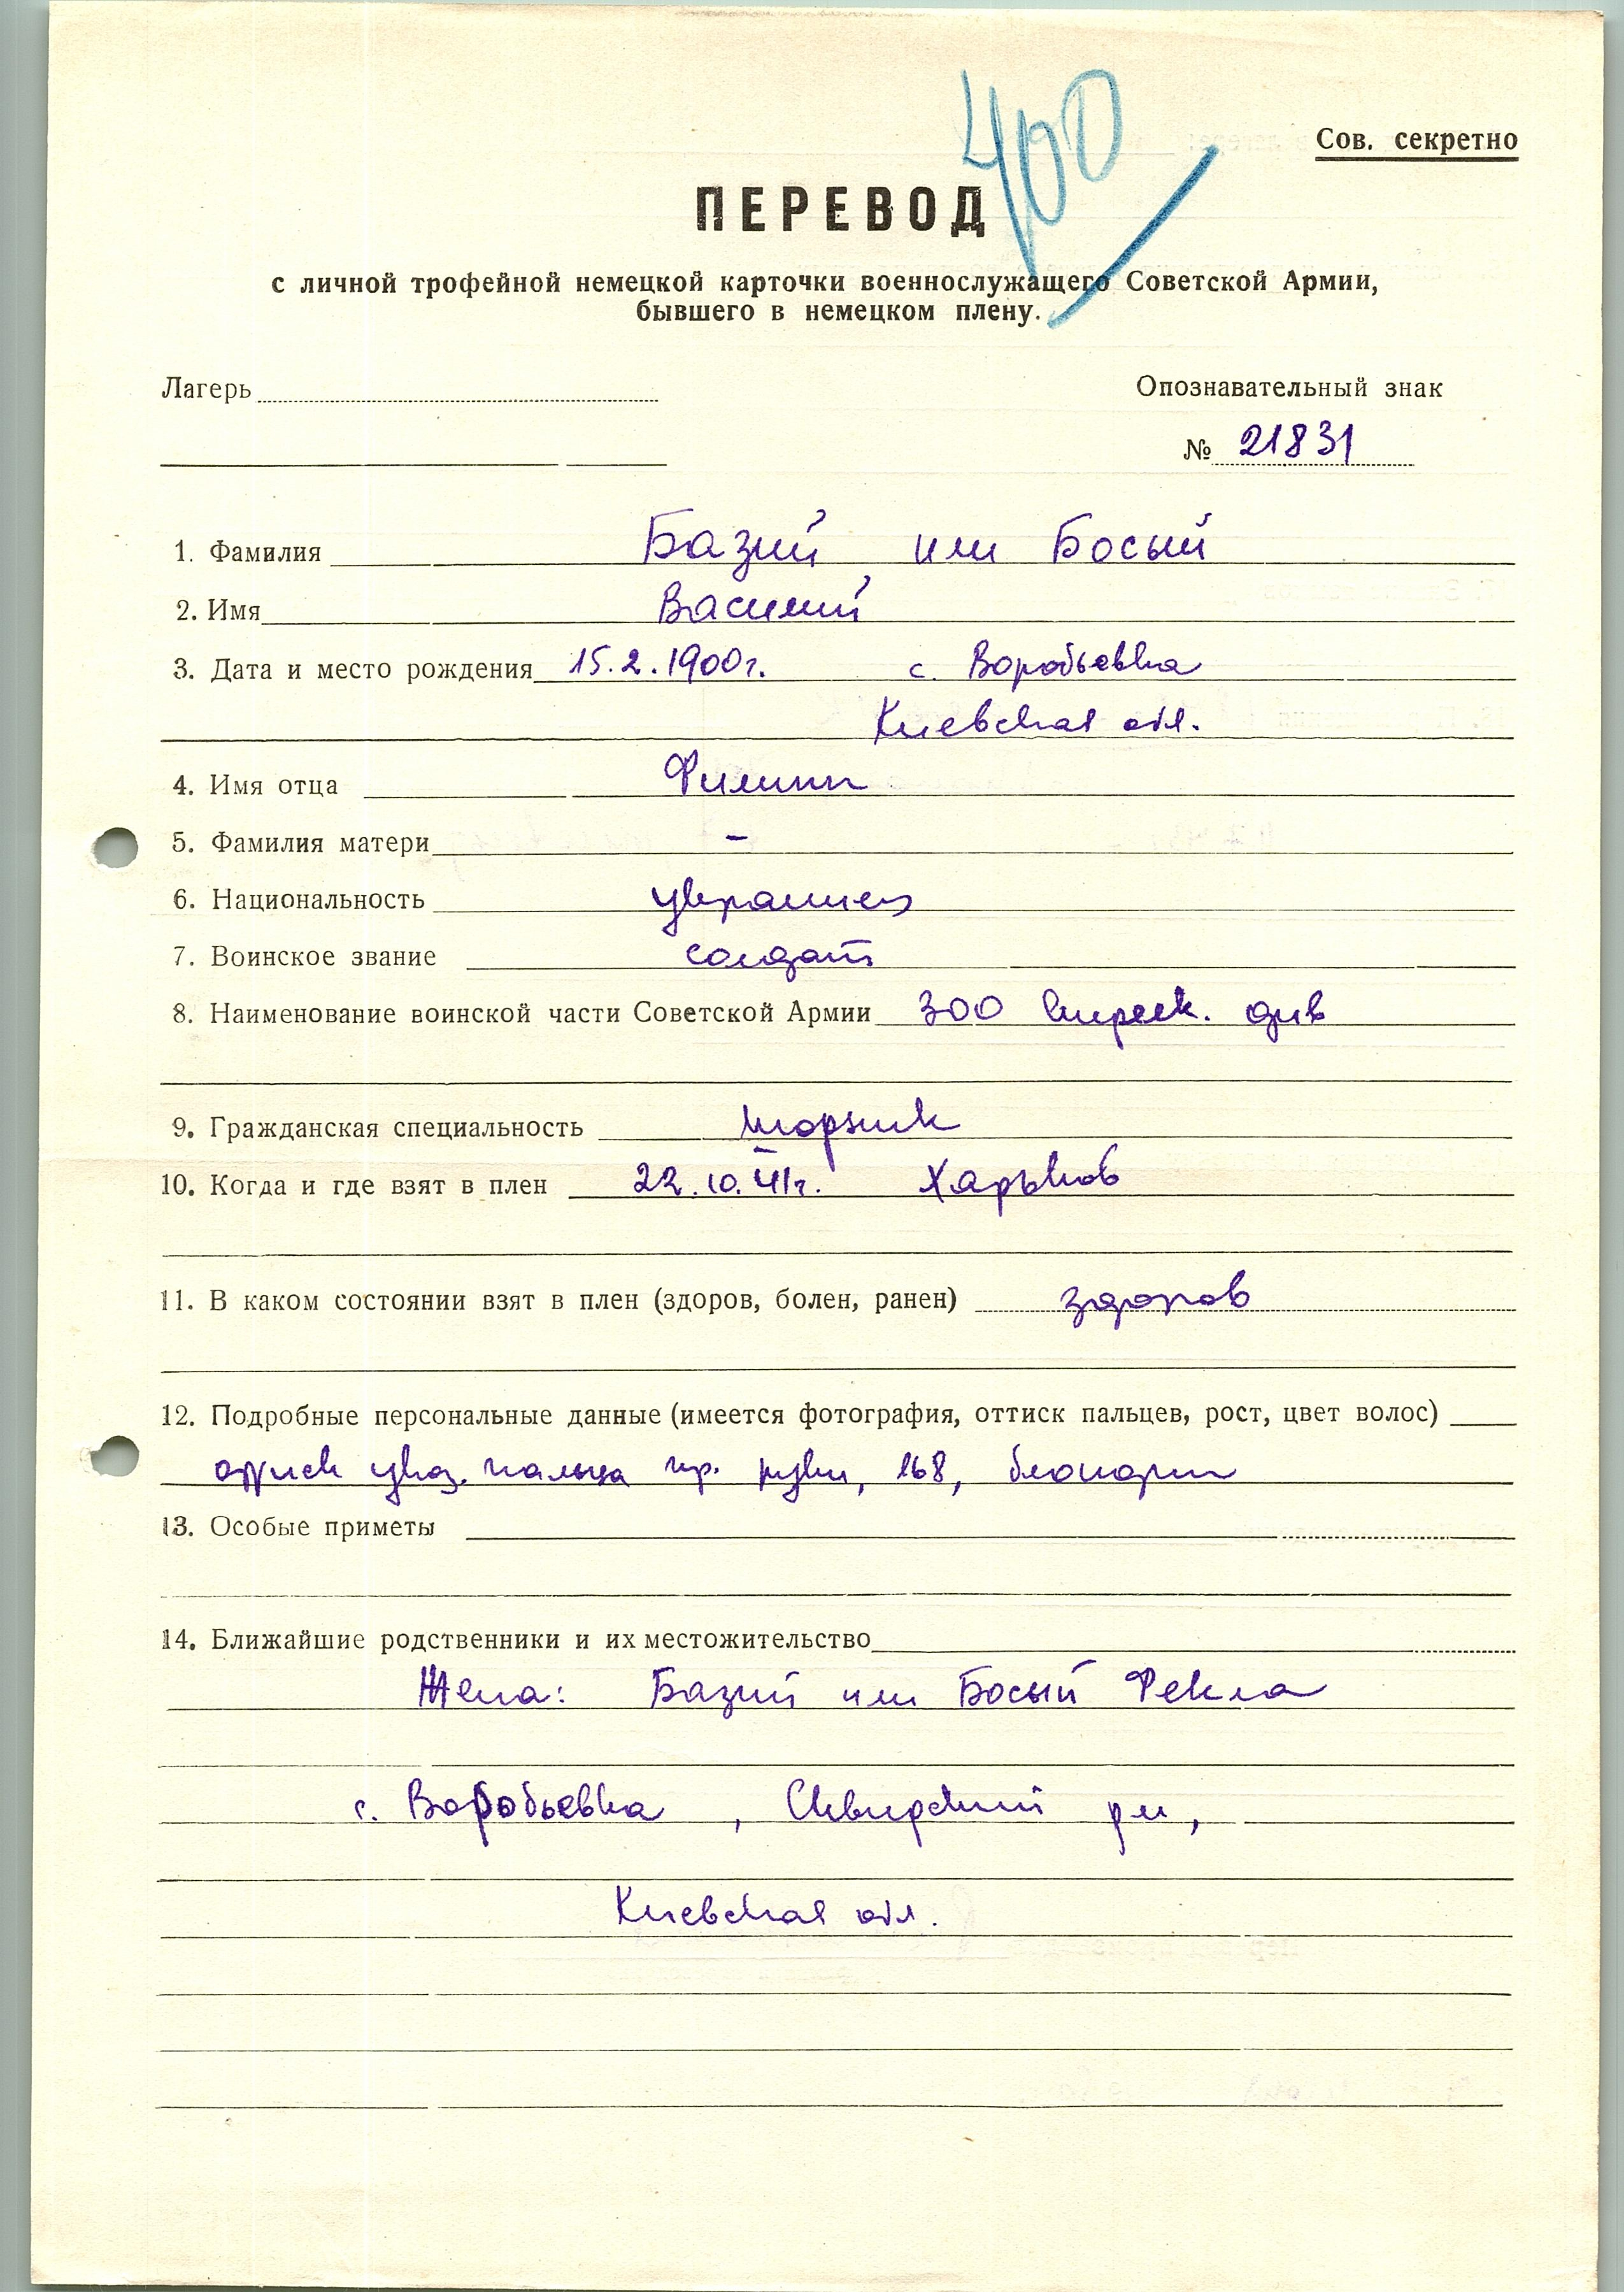 400
Сов. секретно
ПЕРЕВОД
с личной трофейной немецкой карточки военнослужащего Советской Армии,
бывшего в немецком плену.
Лагерь
Опознавательный знак
№ 21831
1. Фамилия Базий или Босый
2. Имя Василий
3. Дата и место рождения 15.2.1900г. с. Воробьевка
Киевская обл.
4. Имя отца Филипп
5. Фамилия матери –
6. Национальность украинец
7. Воинское звание солдат
8. Наименование воинской части Советской Армии 300 див
9. Гражданская специальность шорник
10. Когда и где взят в плен 22.10.41г. Харьков
11. В каком состоянии взят в плен (здоров, болен, ранен) здоров
12. Подробные персональные данные (имеется фотография, оттиск пальцев, рост, цвет волос)
оттиск указ. пальца пр. руки, 168, блондин
13. Особые приметы
14. Ближайшие родственники и их местожительство
Жена: Базий или Босый Фекла
с. Воробьевка, Сквирский р-н,
Киевская обл.